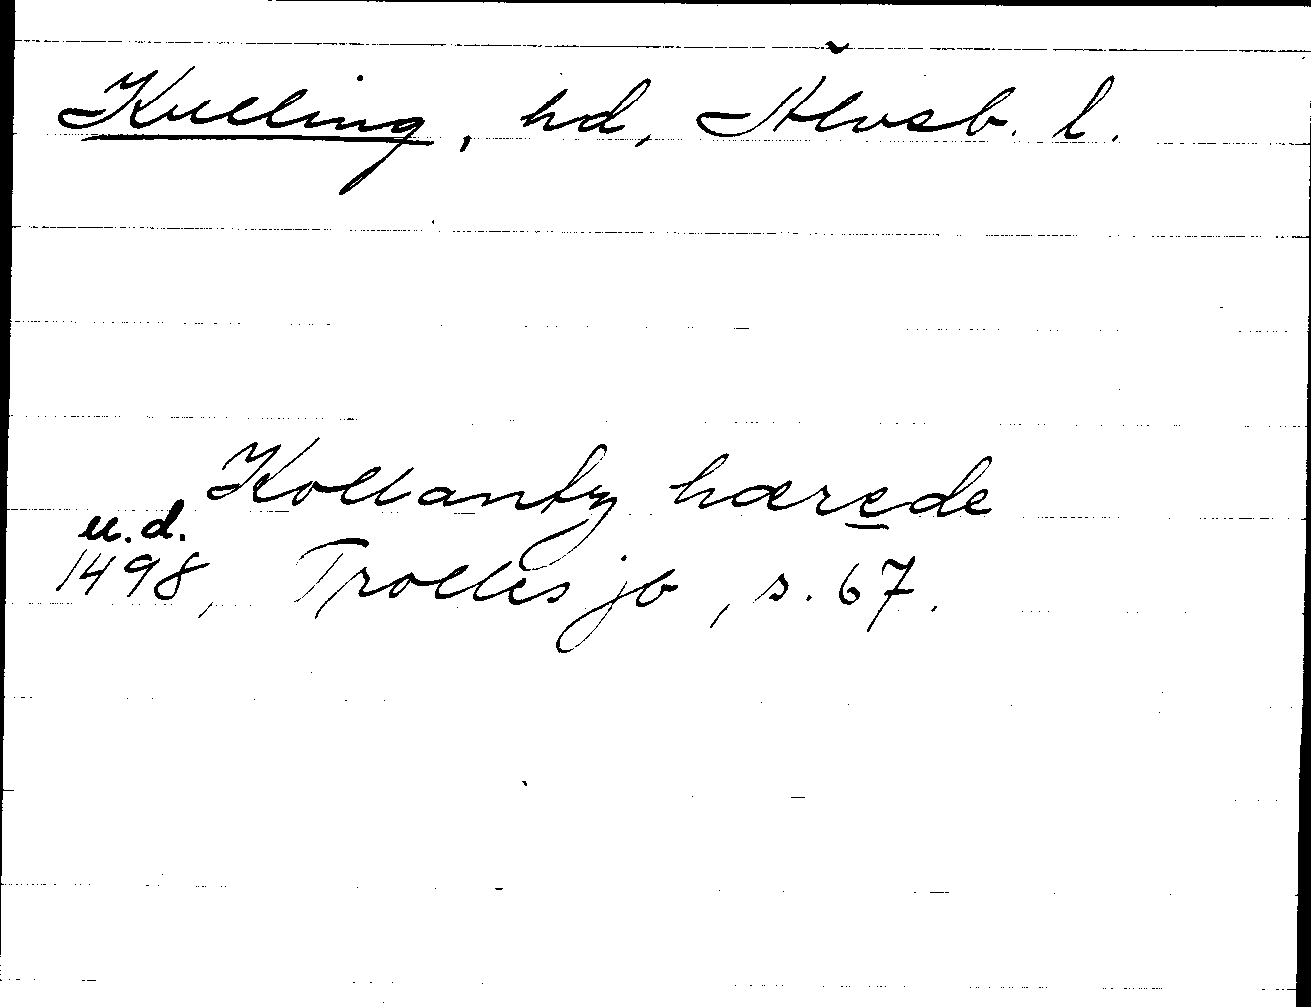 Kulling, hd, Älvsb. l.
Kollantz hærede
u.d.
1498, Trolles jb, s. 67.